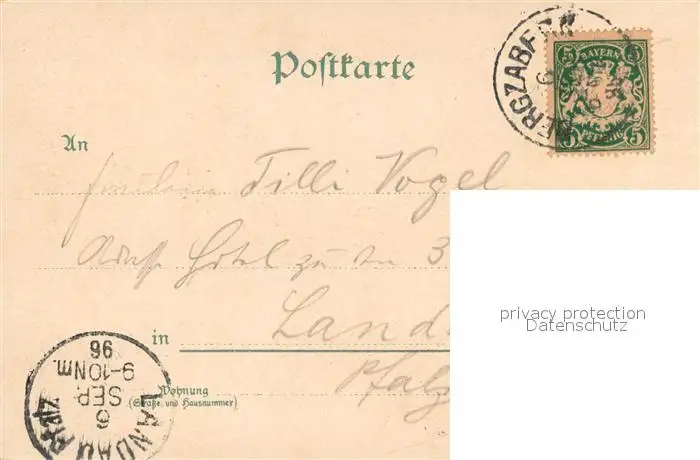 Postkarte
BERGZABERN
6
5 BAYERN 5
5 PFENNIG 5
An
Fräulein Tilli Vogel
Adresse Hôtel zu den 3
in Land
Pfalz
Wohnung
(Straße und Hausnummer)
LANDAU PFALZ
6
SEP.
9-10Nm.
96
privacy protection
Datenschutz